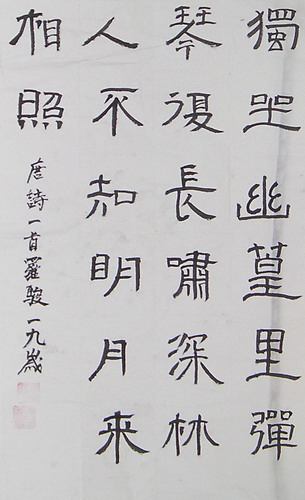 獨坐幽篁里彈
琴復長嘯深林
人不知明月来
相照
唐詩一首羅駿一九歲